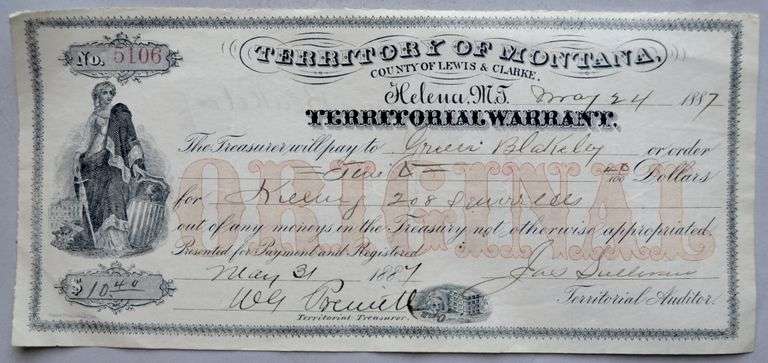 No. 5106
TERRITORY OF MONTANA,
COUNTY OF LEWIS & CLARKE.
Helena, M.T. May 24 1887
TERRITORIAL WARRANT.
The Treasurer will pay to Green Blakeley or order
Ten & 40/100 Dollars
for Killing 208 Squirrels
out of any moneys in the Treasury not otherwise appropriated.
ORIGINAL
Presented for Payment and Registered
May 31 1887
$10.40
Territorial Auditor.
Territorial Treasurer.